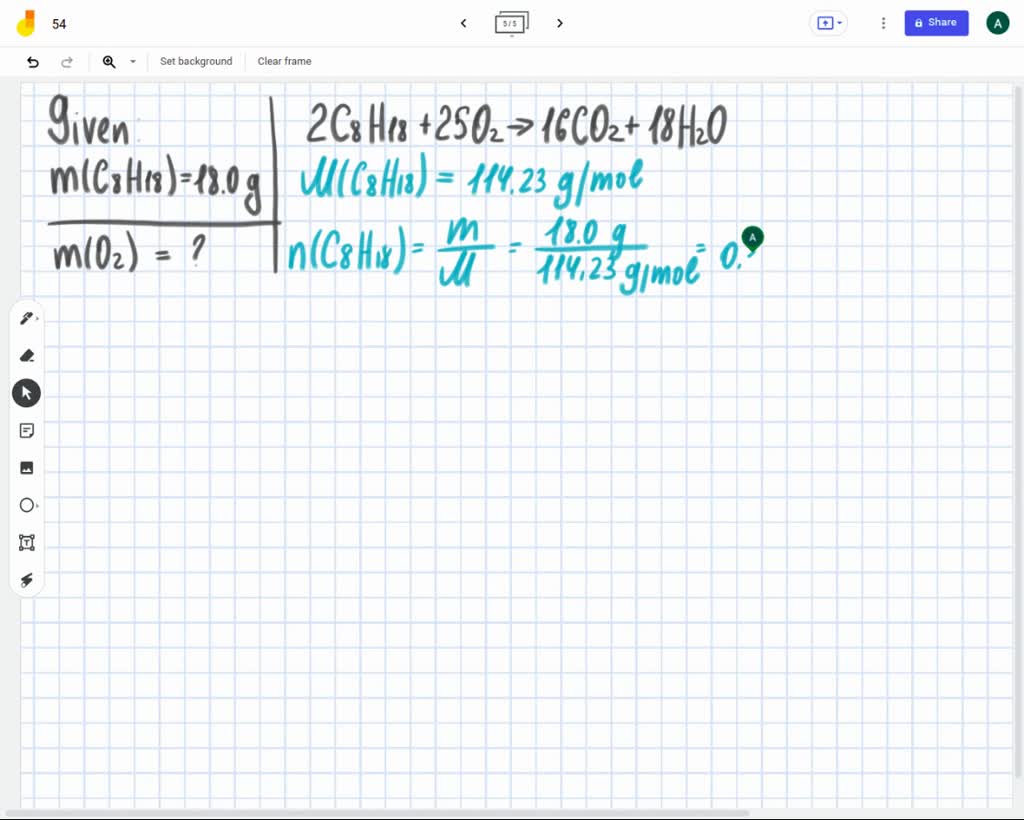 54
5/5
Share
A
Set background
Clear frame
Given:
m(C₈H₁₈)=18.0 g
m(O₂) = ?
2C₈H₁₈ +25O₂→16CO₂+ 18H₂O
M(C₈H₁₈) = 114.23 g/mol
n(C₈H₁₈)= m/M = 18.0 g/114.23 g/mol = 0.
A